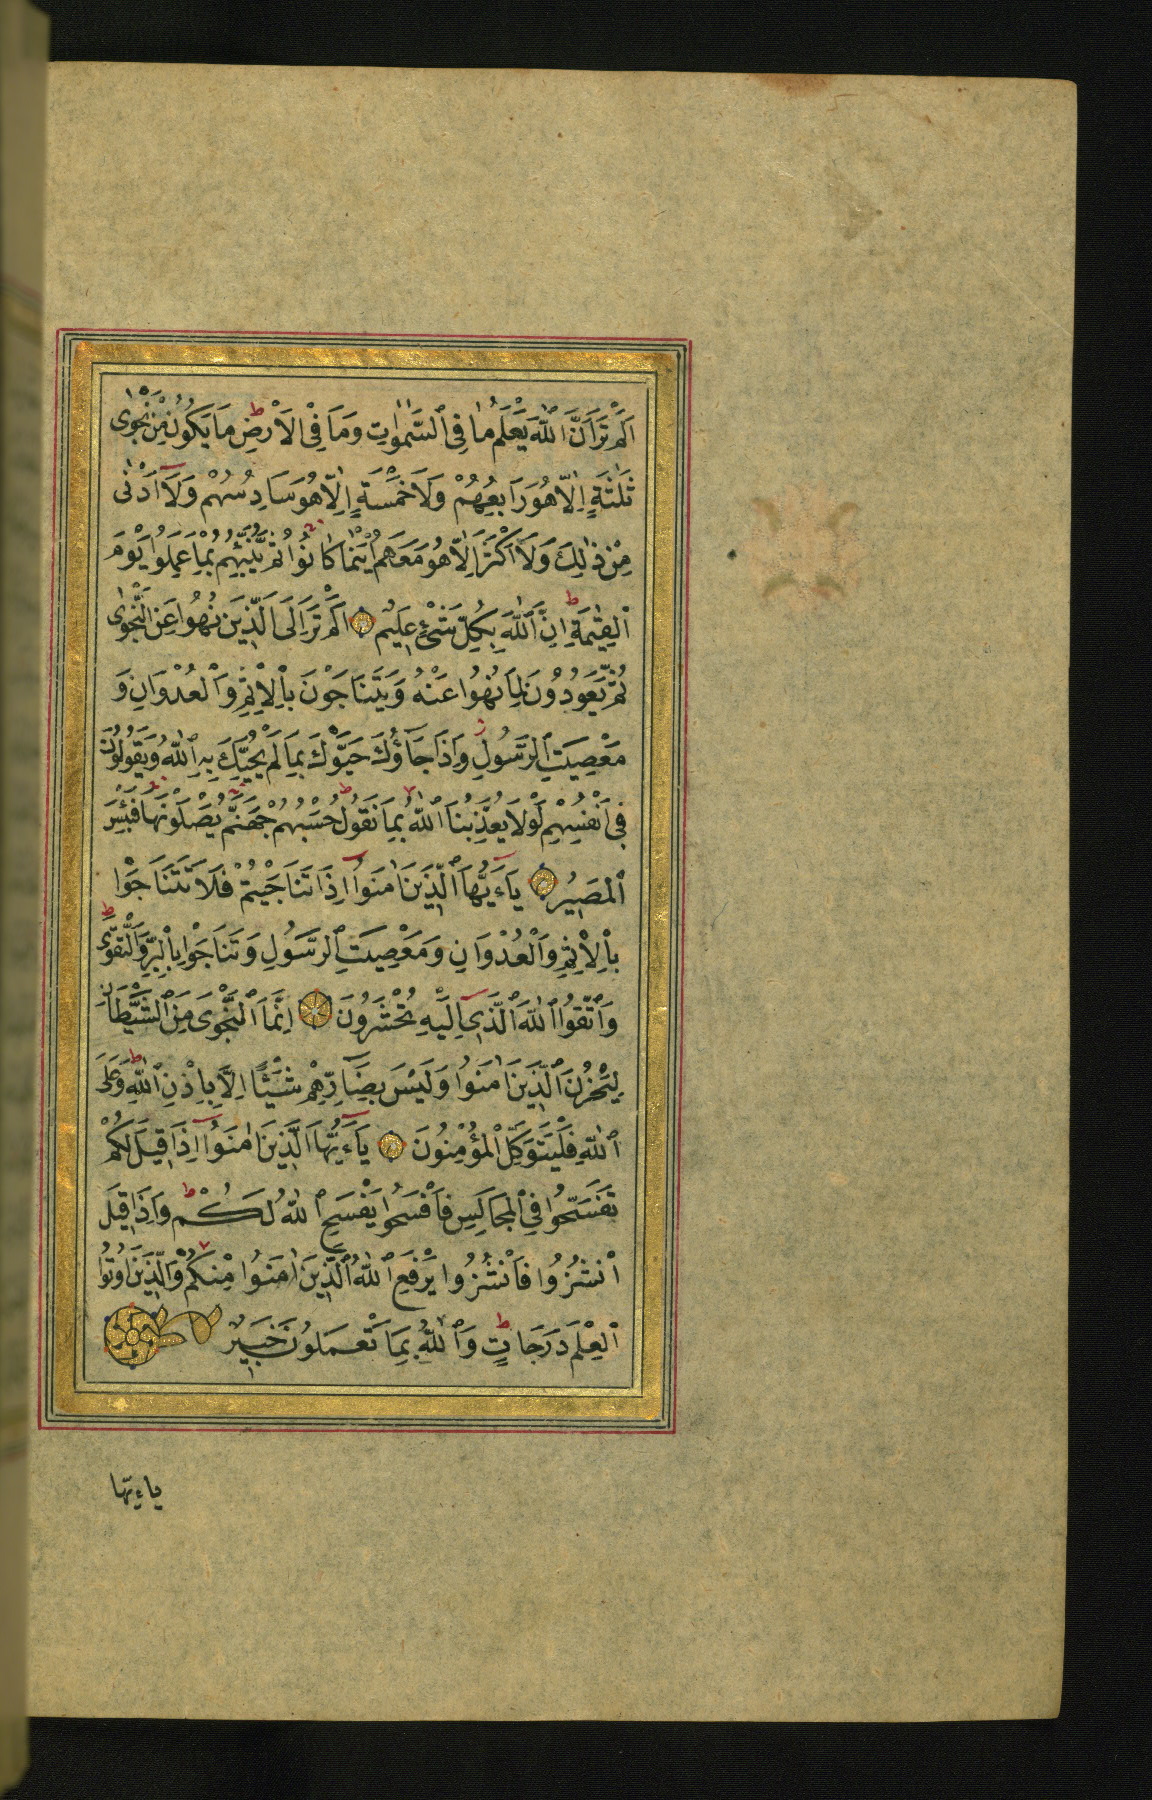 اَلَمْ تَرَ اَنَّ اللّٰهَ يَعْلَمُ مَا فِى السَّمٰوَاتِ وَمَا فِى الْاَرْضِ مَا يَكُونُ مِنْ نَجْوٰى
ثَلٰثَةٍ اِلَّا هُوَ رَابِعُهُمْ وَلَا خَمْسَةٍ اِلَّا هُوَ سَادِسُهُمْ وَلَآ اَدْنٰى
مِنْ ذٰلِكَ وَلَآ اَكْثَرَ اِلَّا هُوَ مَعَهُمْ اَيْنَمَا كَانُوا ثُمَّ يُنَبِّئُهُمْ بِمَا عَمِلُوا يَوْمَ
الْقِيٰمَةِ اِنَّ اللّٰهَ بِكُلِّ شَىْءٍ عَلِيمٌ اَلَمْ تَرَ اِلَى الَّذِينَ نُهُوا عَنِ النَّجْوٰى
ثُمَّ يَعُودُونَ لِمَا نُهُوا عَنْهُ وَيَتَنَاجَوْنَ بِالْاِثْمِ وَالْعُدْوَانِ وَ
مَعْصِيَتِ الرَّسُولِ وَاِذَا جَآؤُكَ حَيَّوْكَ بِمَا لَمْ يُحَيِّكَ بِهِ اللّٰهُ وَيَقُولُونَ
فِى اَنْفُسِهِمْ لَوْلَا يُعَذِّبُنَا اللّٰهُ بِمَا نَقُولُ حَسْبُهُمْ جَهَنَّمُ يَصْلَوْنَهَا فَبِئْسَ
الْمَصِيرُ يَآءَيُّهَا الَّذِينَ اٰمَنُوٓا اِذَا تَنَاجَيْتُمْ فَلَا تَتَنَاجَوْا
بِالْاِثْمِ وَالْعُدْوَانِ وَمَعْصِيَتِ الرَّسُولِ وَتَنَاجَوْا بِالْبِرِّ وَالتَّقْوٰى
وَاتَّقُوا اللّٰهَ الَّذِىٓ اِلَيْهِ تُحْشَرُونَ اِنَّمَا النَّجْوٰى مِنَ الشَّيْطَانِ
لِيَحْزُنَ الَّذِينَ اٰمَنُوا وَلَيْسَ بِضَآرِّهِمْ شَيْئًا اِلَّا بِاِذْنِ اللّٰهِ وَعَلَى
اللّٰهِ فَلْيَتَوَكَّلِ الْمُؤْمِنُونَ يَآءَيُّهَا الَّذِينَ اٰمَنُوٓا اِذَا قِيلَ لَكُمْ
تَفَسَّحُوا فِى الْمَجَالِسِ فَافْسَحُوا يَفْسَحِ اللّٰهُ لَكُمْ وَاِذَا قِيلَ
انْشُزُوا فَانْشُزُوا يَرْفَعِ اللّٰهُ الَّذِينَ اٰمَنُوا مِنْكُمْ وَالَّذِينَ اُوتُوا
الْعِلْمَ دَرَجَاتٍ وَاللّٰهُ بِمَا تَعْمَلُونَ خَبِيرٌ
ياءيّها